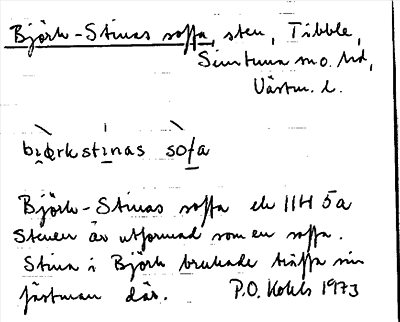 Björk-Stinas soffa, sten, Tibble,
Simtuna sn o. hd,
Västm. l.
bịœrkstinas sofa
Björk-Stinas soffa ek 11H 5a
Stenen är utformad som en soffa.
Stina i Björk brukade träffa sin
fästman där. P.O. 1973